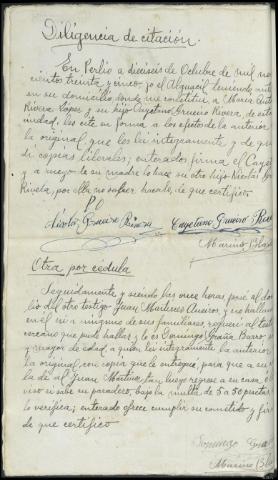 Diligencia de citación.
En Perlio a dieciseis de Octubre de mil no
cientos treinta y cinco yo el Alguacil teniendo ante
en su domicilio donde me constituí a Maria
Rivera Lopez y su hijo Cayetano Grueiro Rivera, de esta
cindad, les cité en forma, a los efectos de la anterior
la original, que les leí integramente y de que
di copias literales; enterados firma el Caye
y a ruego de su madre lo hace su otro hijo Nicolás
Rivera, por ella no saber hacerlo, de que certifico
Cayetano Grueiro
Marino
Otra por cédula
Seguidamente y siendo las once horas pasé al do
lio del otro testigo Juan Martinez y no hallan
en él ni a ninguno de sus familiares, requerí al
cercano que pude hallar y lo es Domingo Graña
y mayor de edad, a quien leí integramente la anterior
la original, con copia que le entregué, para que a su
la dé al Juan Martinez, tan luego regrese a su casa o
viso si sabe su paradero, bajo la multa de 5 a 50 pesetas
lo verifica; enterado ofrece cumplir su cometido y fir
de que certifico
Domingo Gra
Marino